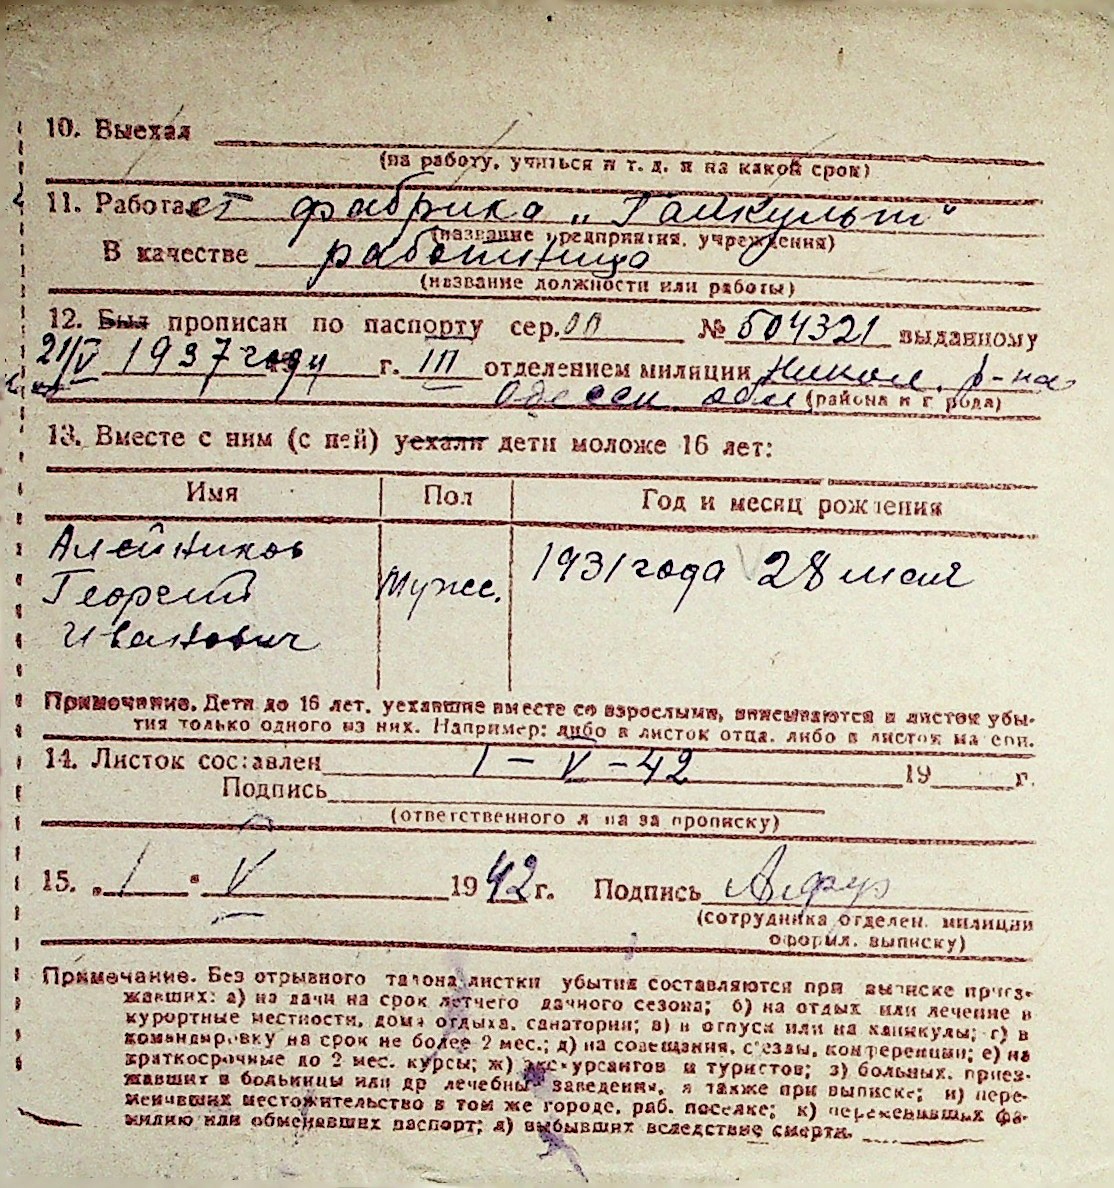 10. Выехал
(на работу, учиться и т. д. и на какой срок)
11. Работает фабрика „Гайкульт“
(название предприятия, учреждения)
В качестве работница
(название должности или работы)
12. Был прописан по паспорту сер. ОП № 504321 выданному
21/V 1937 году г. III отделением милиции Никол. р-на
Одесск. обл (района и города)
13. Вместе с ним (с ней) уехали дети моложе 16 лет:
Имя Пол Год и месяц рождения
Алейников
Георгий Мужс. 1931 года 28 мая
Иванович
Примечание. Дети до 16 лет, уехавшие вместе со взрослыми, вписываются в листок убы-
тия только одного из них. Например: либо в листок отца, либо в листок матери.
14. Листок составлен 1 – V – 42 19 г.
Подпись
(ответственного лица за прописку)
15. „1“ V 1942 г. Подпись
(сотрудника отделен. милиции
оформл. выписку)
Примечание. Без отрывного талона листки убытия составляются при выписке приез-
жавших: а) на дачи на срок летнего дачного сезона; б) на отдых или лечение в
курортные местности, дома отдыха, санатории; в) в отпуск или на каникулы; г) в
командировку на срок не более 2 мес.; д) на совещания, съезды, конференции; е) на
краткосрочные до 2 мес. курсы; ж) экскурсантов и туристов; з) больных, приез-
жавших в больницы или др лечебные заведения, а также при выписке; и) пере-
менивших местожительство в том же городе, раб. поселке; к) переменивших фа-
милию или обменявших паспорт; л) выбывших вследствие смерти.